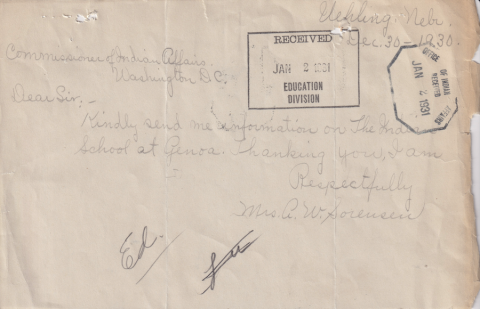 Uehling, Nebr.
Dec. 30 - 1930.
Commissioner of Indian Affairs.
Washington D.C.
Dear Sir:-
Kindly send me information on The Indian
School at Genoa. Thanking you, I am
Respectfully
Mrs. A. W. Sorensen
RECEIVED
JAN 2 1931
EDUCATION
DIVISION
OFFICE
OF INDIAN
AFFAIRS
RECEIVED
JAN 2 1931
Ed.